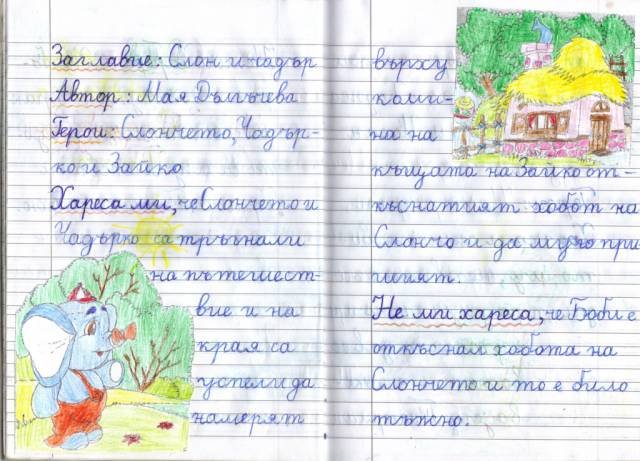 Заглавие: Слон и чадър
Автор: Мая Дългъчева
Герои: Слончето, Чадър-
ко и Зайко
Хареса ми, че Слончето и
Чадърко са тръгнали
на пътешест-
вие и на
края са
успели да
намерят
върху
коми-
на на
къщата на Зайко от-
къснатият хобот на
Слончо и да му го при
шият.
Не ми хареса, че Боби е
откъснал хобота на
Слончето и то е било
тъжно.